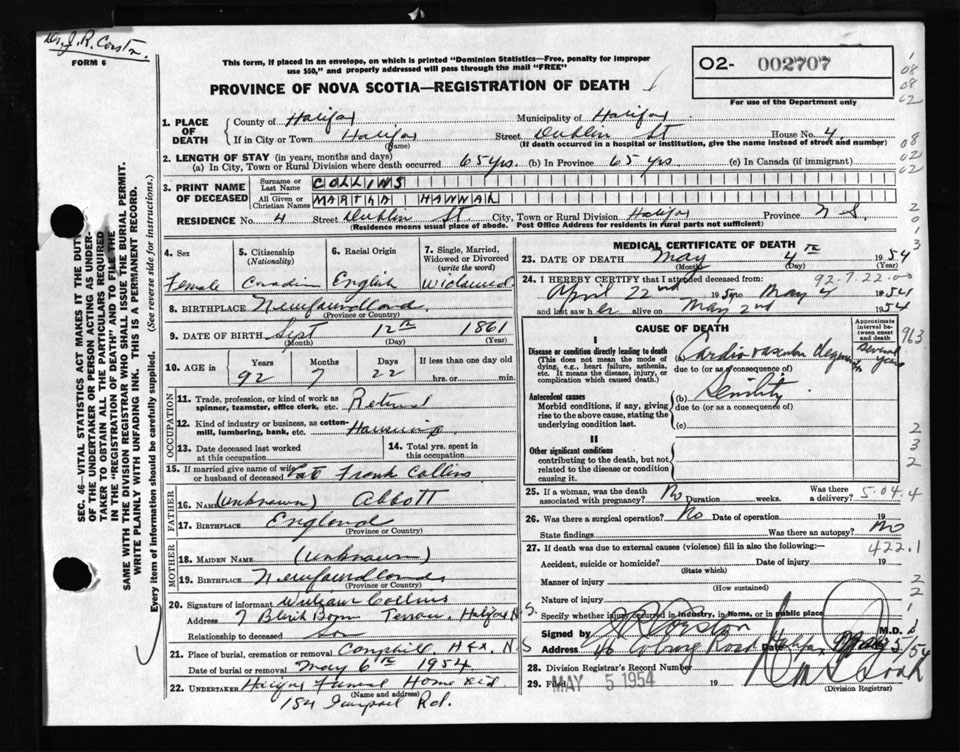 Dr. J. R. Corston
FORM 6
This form, if placed in an envelope, on which is printed "Dominion Statistics—Free, penalty for improper
use $50," and properly addressed will pass through the mail "FREE"
PROVINCE OF NOVA SCOTIA—REGISTRATION OF DEATH
02- 002707
For use of the Department only
1. PLACE OF DEATH
County of Halifax Municipality of Halifax
If in City or Town Halifax Street Dublin St House No. 4.
(Name) (If death occurred in a hospital or institution, give the name instead of street and number)
2. LENGTH OF STAY (in years, months and days)
(a) In City, Town or Rural Division where death occurred 65 yrs. (b) In Province 65 yrs (c) In Canada (if immigrant)
3. PRINT NAME OF DECEASED
Surname or Last Name COLLINS
All Given or Christian Names MARTHA HANNAH
RESIDENCE No. 4 Street Dublin St. City, Town or Rural Division Halifax Province N S.
(Residence means usual place of abode. Post Office Address for residents in rural parts not sufficient)
4. Sex
Female
5. Citizenship
(Nationality)
Canadian
6. Racial Origin
English
7. Single, Married,
Widowed or Divorced
(write the word)
Widowed
8. BIRTHPLACE Newfoundland
(Province or Country)
9. DATE OF BIRTH Sept 12th 1861
(Month) (Day) (Year)
10. AGE in Years Months Days If less than one day old
92 7 22 hrs. or min.
OCCUPATION
11. Trade, profession, or kind of work as
spinner, teamster, office clerk, etc. Retired
12. Kind of industry or business, as cotton-
mill, lumbering, bank, etc.
13. Date deceased last worked
at this occupation
14. Total yrs. spent in
this occupation
15. If married give name of wife
or husband of deceased Late Frank Collins
FATHER
16. NAME (unknown) Abbott
17. BIRTHPLACE England
(Province or Country)
MOTHER
18. MAIDEN NAME (unknown)
19. BIRTHPLACE Newfoundland
(Province or Country)
20. Signature of informant William Collins
Address 7 Terrace, Halifax N.S.
Relationship to deceased Son
21. Place of burial, cremation or removal Camphill, Hfx, N.S
Date of burial or removal May 6th 1954
22. UNDERTAKER Halifax Funeral Home Ltd.
(Name and address)
Rd.
MEDICAL CERTIFICATE OF DEATH
23. DATE OF DEATH May 4th 1954
(Month) (Day) (Year)
92-7.22-00
24. I HEREBY CERTIFY that I attended deceased from
April 22nd 1954 to May 4 1954
and last saw her alive on May 2nd 1954
CAUSE OF DEATH
Approximate interval between onset and death
I
Disease or condition directly leading to death
(This does not mean the mode of
dying, e.g., heart failure, asthenia,
etc. It means the disease, injury, or
complication which caused death.)
(a) Cardio vascular
due to (or as consequence of)
Several years
Antecedent causes
Morbid conditions, if any, giving
rise to the above cause, stating the
underlying condition last.
(b) Senility
due to (or as a consequence of)
(c)
II
Other significant conditions
contributing to the death, but not
related to the disease or condition
causing it.
25. If a woman, was the death
associated with pregnancy? No Duration weeks. Was there
a delivery? 5-04.4
26. Was there a surgical operation? No Date of operation 19
State findings Was there an autopsy? No
27. If death was due to external causes (violence) fill in also the following:—
422.1
Accident, suicide or homicide? Date of injury 19
(State which)
Manner of injury
(How sustained)
Nature of injury
Specify whether injury occurred in industry, in home, or in public place
Signed by J R Corston M.D.
Address Coburg Road Date Halifax, May 5/54
28. Division Registrar's Record Number
29. Filed MAY 5 1954 19
(Division Registrar)
SEC. 46—VITAL STATISTICS ACT MAKES IT THE DUTY
OF THE UNDERTAKER OR PERSON ACTING AS UNDER-
TAKER TO OBTAIN ALL THE PARTICULARS REQUIRED
IN THE "REGISTRATION OF DEATH" AND TO FILE THE
SAME WITH THE DIVISION REGISTRAR WHO SHALL ISSUE THE BURIAL PERMIT.
WRITE PLAINLY WITH UNFADING INK. THIS IS A PERMANENT RECORD.
Every item of information should be carefully supplied. (See reverse side for instructions.)